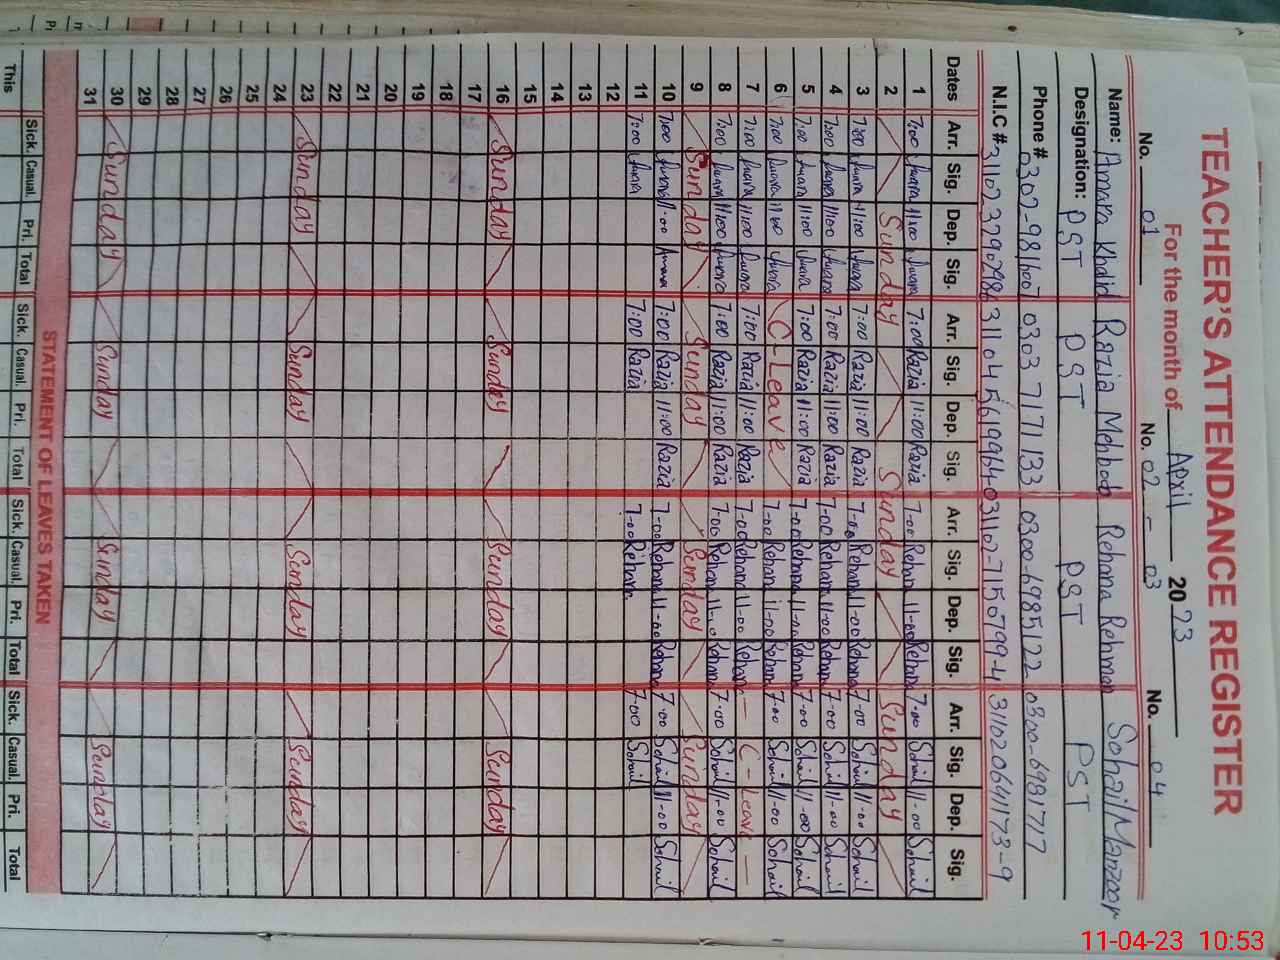 TEACHER'S ATTENDANCE REGISTER
For the month of April 2023
No. 01 No. 02 - 03 No. 04
Name: Amara Khalid Razia Mehboob Rehana Rehman Sohail Manzoor
Designation: PST PST PST PST
Phone # 0302-9816007 0303 7171133 0300-6985122 0300-6981717
N.I.C #
Dates Arr. Sig. Dep. Sig. Arr. Sig. Dep. Sig. Arr. Sig. Dep. Sig. Arr. Sig. Dep. Sig.
1 7:00 Amara 11:00 Amara 7:00 Razia 11:00 Razia 7-00 Rehana 11-00 Rehana 7-00 Sohail 11-00 Sohail
2 Sunday Sunday Sunday
3 7:00 Amara 11:00 Amara 7:00 Razia 11:00 Razia 7-00 Rehana 11-00 Rehana 7-00 Sohail 11-00 Sohail
4 7:00 Amara 11:00 Amara 7:00 Razia 11:00 Razia 7-00 Rehana 11-00 Rehana 7-00 Sohail 11-00 Sohail
5 7:00 Amara 11:00 Amara 7:00 Razia 11:00 Razia 7-00 Rehana 11-00 Rehana 7-00 Sohail 11-00 Sohail
6 7:00 Amara 11:00 Amara C-Leave 7-00 Rehana 11-00 Rehana 7-00 Sohail 11-00 Sohail
7 7:00 Amara 11:00 Amara 7:00 Razia 11:00 Razia 7-00 Rehana 11-00 Rehana C-Leave
8 7:00 Amara 11:00 Amara 7:00 Razia 11:00 Razia 7-00 Rehana 11-00 Rehana 7-00 Sohail 11-00 Sohail
9 Sunday Sunday Sunday Sunday
10 7:00 Amara 11:00 Amara 7:00 Razia 11:00 Razia 7-00 Rehana 11-00 Rehana 7-00 Sohail 11-00 Sohail
11 7:00 Amara 7:00 Razia 7-00 Rehana 7-00 Sohail
12
13
14
15
16 Sunday Sunday Sunday Sunday
17
18
19
20
21
22
23 Sunday Sunday Sunday Sunday
24
25
26
27
28
29
30 Sunday Sunday Sunday Sunday
31
STATEMENT OF LEAVES TAKEN
Sick. Casual. Pri. Total Sick. Casual. Pri. Total Sick. Casual. Pri. Total Sick. Casual. Pri. Total
This
11-04-23 10:53